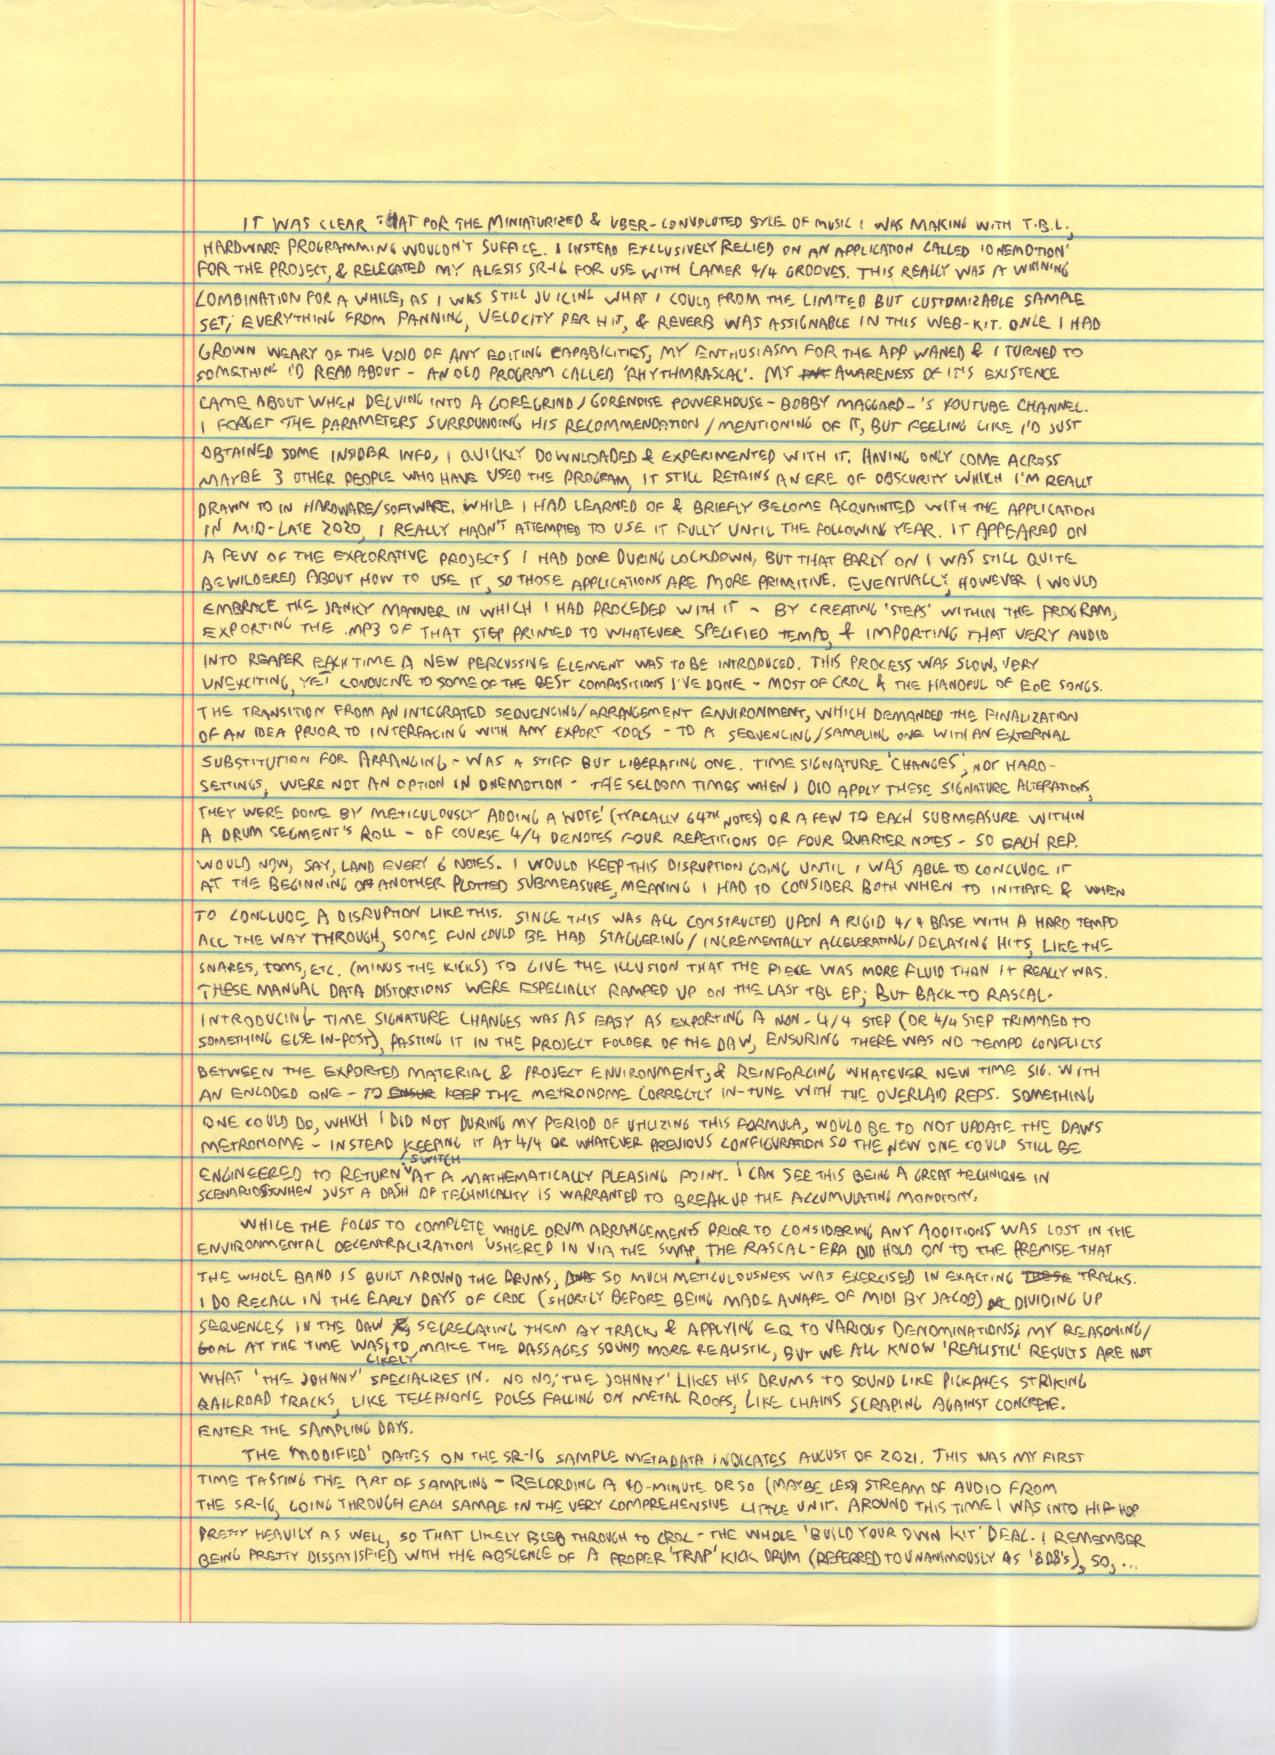 IT WAS CLEAR THAT FOR THE MINIATURIZED & UBER-CONVOLOTED STYLE OF MUSIC I WAS MAKING WITH T.B.L.,
HARDWARE PROGRAMMING WOULDN'T SUFFICE. I INSTEAD EXCLUSIVELY RELIED ON AN APPLICATION CALLED 'ONEMOTION'
FOR THE PROJECT, & RELEGATED MY ALESIS SR-16 FOR USE WITH LAMER 4/4 GROOVES. THIS REALLY WAS A WINNING
COMBINATION FOR A WHILE, AS I WAS STILL JUICING WHAT I COULD FROM THE LIMITED BUT CUSTOMIZABLE SAMPLE
SET; EVERYTHING FROM PANNING, VELOCITY PER HIT, & REVERB WAS ASSIGNABLE IN THIS WEB-KIT. ONCE I HAD
GROWN WEARY OF THE VOID OF ANY EDITING CAPABILITIES, MY ENTHUSIASM FOR THE APP WANED & I TURNED TO
SOMETHING I'D READ ABOUT - AN OLD PROGRAM CALLED 'RHYTHMRASCAL'. MY AWARENESS OF IT'S EXISTENCE
CAME ABOUT WHEN DELVING INTO A GOREGRIND/GORENOISE POWERHOUSE - BOBBY MAGGARD - 'S YOUTUBE CHANNEL.
I FORGET THE PARAMETERS SURROUNDING HIS RECOMMENDATION/MENTIONING OF IT, BUT FEELING LIKE I'D JUST
OBTAINED SOME INSIDER INFO, I QUICKLY DOWNLOADED & EXPERIMENTED WITH IT. HAVING ONLY COME ACROSS
MAYBE 3 OTHER PEOPLE WHO HAVE USED THE PROGRAM, IT STILL RETAINS AN ERE OF OBSCURITY WHICH I'M REALLY
DRAWN TO IN HARDWARE/SOFTWARE. WHILE I HAD LEARNED OF & BRIEFLY BECOME ACQUAINTED WITH THE APPLICATION
IN MID-LATE 2020, I REALLY HADN'T ATTEMPTED TO USE IT FULLY UNTIL THE FOLLOWING YEAR. IT APPEARED ON
A FEW OF THE EXPLORATIVE PROJECTS I HAD DONE DURING LOCKDOWN, BUT THAT EARLY ON I WAS STILL QUITE
BEWILDERED ABOUT HOW TO USE IT, SO THOSE APPLICATIONS ARE MORE PRIMITIVE. EVENTUALLY, HOWEVER I WOULD
EMBRACE THE JANKY MANNER IN WHICH I HAD PROCEDED WITH IT - BY CREATING 'STEPS' WITHIN THE PROGRAM,
EXPORTING THE .MP3 OF THAT STEP PRINTED TO WHATEVER SPECIFIED TEMPO, & IMPORTING THAT VERY AUDIO
INTO REAPER EACH TIME A NEW PERCUSSIVE ELEMENT WAS TO BE INTRODUCED. THIS PROCESS WAS SLOW, VERY
UNEXCITING, YET CONDUCIVE TO SOME OF THE BEST COMPOSITIONS I'VE DONE - MOST OF CROC & THE HANDFUL OF EOE SONGS.
THE TRANSITION FROM AN INTEGRATED SEQUENCING/ARRANGEMENT ENVIRONMENT, WHICH DEMANDED THE FINALIZATION
OF AN IDEA PRIOR TO INTERFACING WITH ANY EXPORT TOOLS - TO A SEQUENCING/SAMPLING ONE WITH AN EXTERNAL
SUBSTITUTION FOR ARRANGING - WAS A STIFF BUT LIBERATING ONE. TIME SIGNATURE 'CHANGES', NOT HARD-
SETTINGS, WERE NOT AN OPTION IN ONEMOTION - THE SELDOM TIMES WHEN I DID APPLY THESE SIGNATURE ALTERATIONS,
THEY WERE DONE BY METICULOUSLY ADDING A 'NOTE' (TYPICALLY 64TH NOTES) OR A FEW TO EACH SUBMEASURE WITHIN
A DRUM SEGMENT'S ROLL - OF COURSE 4/4 DENOTES FOUR REPETITIONS OF FOUR QUARTER NOTES - SO EACH REP.
WOULD NOW, SAY, LAND EVERY 6 NOTES. I WOULD KEEP THIS DISRUPTION GOING UNTIL I WAS ABLE TO CONCLUDE IT
AT THE BEGINNING OF ANOTHER PLOTTED SUBMEASURE, MEANING I HAD TO CONSIDER BOTH WHEN TO INITIATE & WHEN
TO CONCLUDE A DISRUPTION LIKE THIS. SINCE THIS WAS ALL CONSTRUCTED UPON A RIGID 4/4 BASE WITH A HARD TEMPO
ALL THE WAY THROUGH, SOME FUN COULD BE HAD STAGGERING/INCREMENTALLY ACCELERATING/DELAYING HITS, LIKE THE
SNARES, TOMS, ETC. (MINUS THE KICKS) TO GIVE THE ILLUSION THAT THE PIECE WAS MORE FLUID THAN IT REALLY WAS.
THESE MANUAL DATA DISTORTIONS WERE ESPECIALLY RAMPED UP ON THE LAST TBL EP; BUT BACK TO RASCAL.
INTRODUCING TIME SIGNATURE CHANGES WAS AS EASY AS EXPORTING A NON-4/4 STEP (OR 4/4 STEP TRIMMED TO
SOMETHING ELSE IN-POST), PASTING IT IN THE PROJECT FOLDER OF THE DAW, ENSURING THERE WAS NO TEMPO CONFLICTS
BETWEEN THE EXPORTED MATERIAL & PROJECT ENVIRONMENT, & REINFORCING WHATEVER NEW TIME SIG. WITH
AN ENCODED ONE - TO ENSUR KEEP THE METRONOME CORRECTLY IN-TUNE WITH THE OVERLAID REPS. SOMETHING
ONE COULD DO, WHICH I DID NOT DURING MY PERIOD OF UTILIZING THIS FORMULA, WOULD BE TO NOT UPDATE THE DAWS
METRONOME - INSTEAD KEEPING IT AT 4/4 OR WHATEVER PREVIOUS CONFIGURATION SO THE NEW ONE COULD STILL BE
ENGINEERED TO RETURN SWITCH AT A MATHEMATICALLY PLEASING POINT. I CAN SEE THIS BEING A GREAT TECHNIQUE IN
SCENARIOS WHEN JUST A DASH OF TECHNICALITY IS WARRANTED TO BREAK UP THE ACCUMULATING MONOTONY.
WHILE THE FOCUS TO COMPLETE WHOLE DRUM ARRANGEMENTS PRIOR TO CONSIDERING ANY ADDITIONS WAS LOST IN THE
ENVIRONMENTAL DECENTRALIZATION USHERED IN VIA THE SWAP, THE RASCAL-ERA DID HOLD ON TO THE PREMISE THAT
THE WHOLE BAND IS BUILT AROUND THE DRUMS, SO MUCH METICULOUSNESS WAS EXERCISED IN EXACTING THESE TRACKS.
I DO RECALL IN THE EARLY DAYS OF CROC (SHORTLY BEFORE BEING MADE AWARE OF MIDI BY JACOB) DIVIDING UP
SEQUENCES IN THE DAW, SEGREGATING THEM BY TRACK, & APPLYING EQ TO VARIOUS DENOMINATIONS; MY REASONING/
GOAL AT THE TIME WAS LIKELY TO MAKE THE PASSAGES SOUND MORE REALISTIC, BUT WE ALL KNOW 'REALISTIC' RESULTS ARE NOT
WHAT 'THE JOHNNY' SPECIALIZES IN. NO NO, 'THE JOHNNY' LIKES HIS DRUMS TO SOUND LIKE PICKAXES STRIKING
RAILROAD TRACKS, LIKE TELEPHONE POLES FALLING ON METAL ROOFS, LIKE CHAINS SCRAPING AGAINST CONCRETE.
ENTER THE SAMPLING DAYS.
THE 'MODIFIED' DATES ON THE SR-16 SAMPLE METADATA INDICATES AUGUST OF 2021. THIS WAS MY FIRST
TIME TASTING THE ART OF SAMPLING - RECORDING A 40-MINUTE OR SO (MAYBE LESS) STREAM OF AUDIO FROM
THE SR-16, GOING THROUGH EACH SAMPLE IN THE VERY COMPREHENSIVE LITTLE UNIT. AROUND THIS TIME I WAS INTO HIP-HOP
PRETTY HEAVILY AS WELL, SO THAT LIKELY BLED THROUGH TO CROC - THE WHOLE 'BUILD YOUR OWN KIT' DEAL. I REMEMBER
BEING PRETTY DISSATISFIED WITH THE ABSCENCE OF A PROPER 'TRAP' KICK DRUM (REFERRED TO UNANIMOUSLY AS '808's), SO, ...